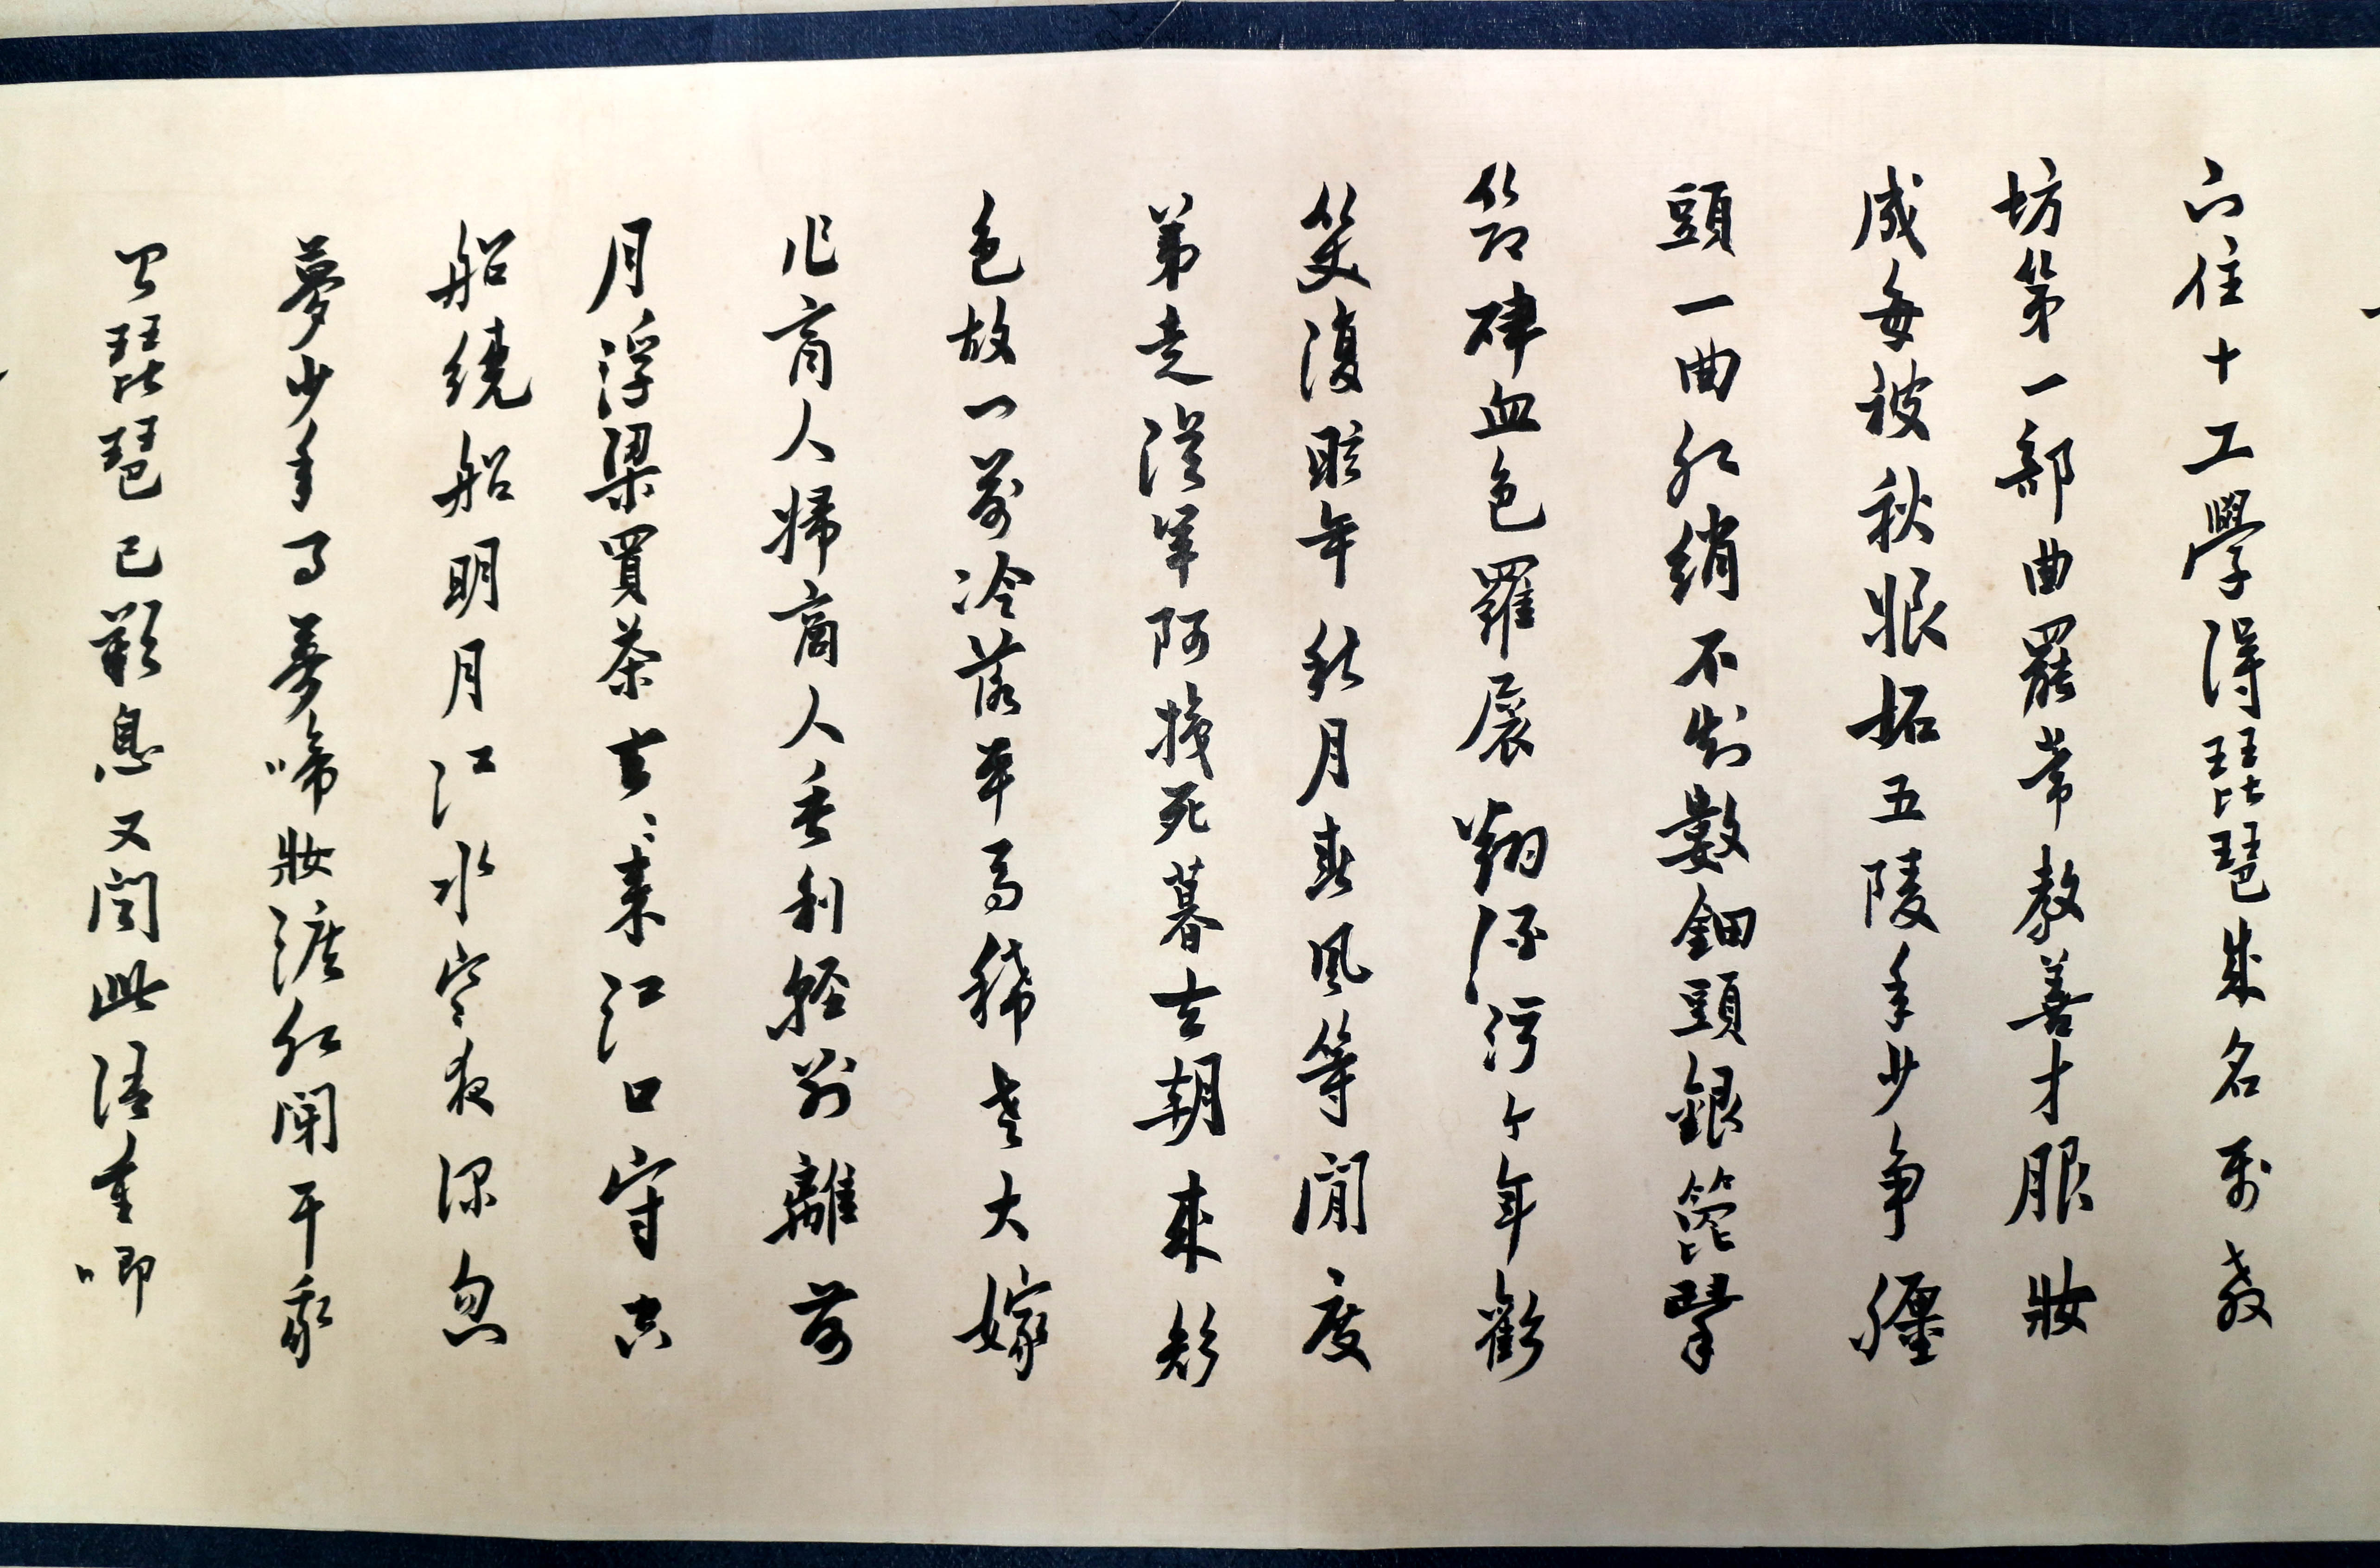 下住十三學得琵琶成名屬教
坊第一部曲罷常教善才服妝
成每被秋娘妬五陵年少争纏
頭一曲紅綃不知數鈿頭銀篦擊
節碎血色羅裙翻酒污今年歡
笑復明年秋月春風等閒度
弟走從軍阿姨死暮去朝來顏
色故門前冷落車馬稀老大嫁
作商人婦商人重利輕別離前
月浮梁買茶去去來江口守空
船繞船明月江水寒夜深忽
夢少年事夢啼妝淚紅闌干我
聞琵琶已歎息又聞此語重唧